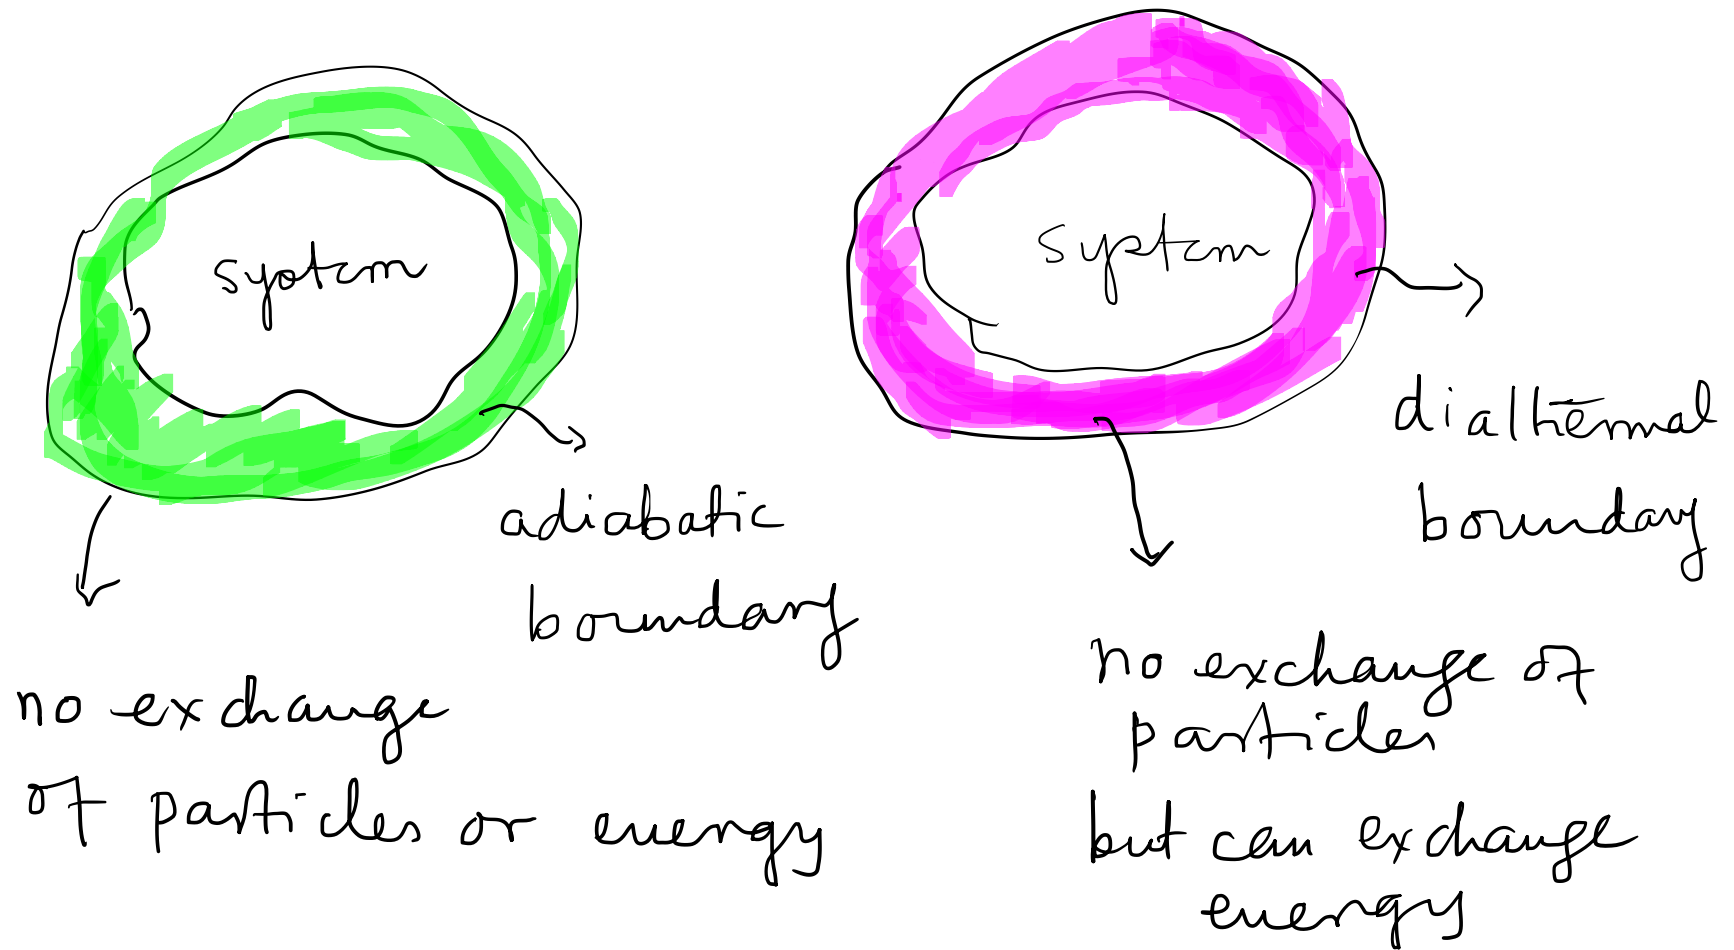 system
adiabatic
boundary
no exchange
of particles or energy
system
dialthermal
boundary
no exchange of
particles
but can exchange
energy